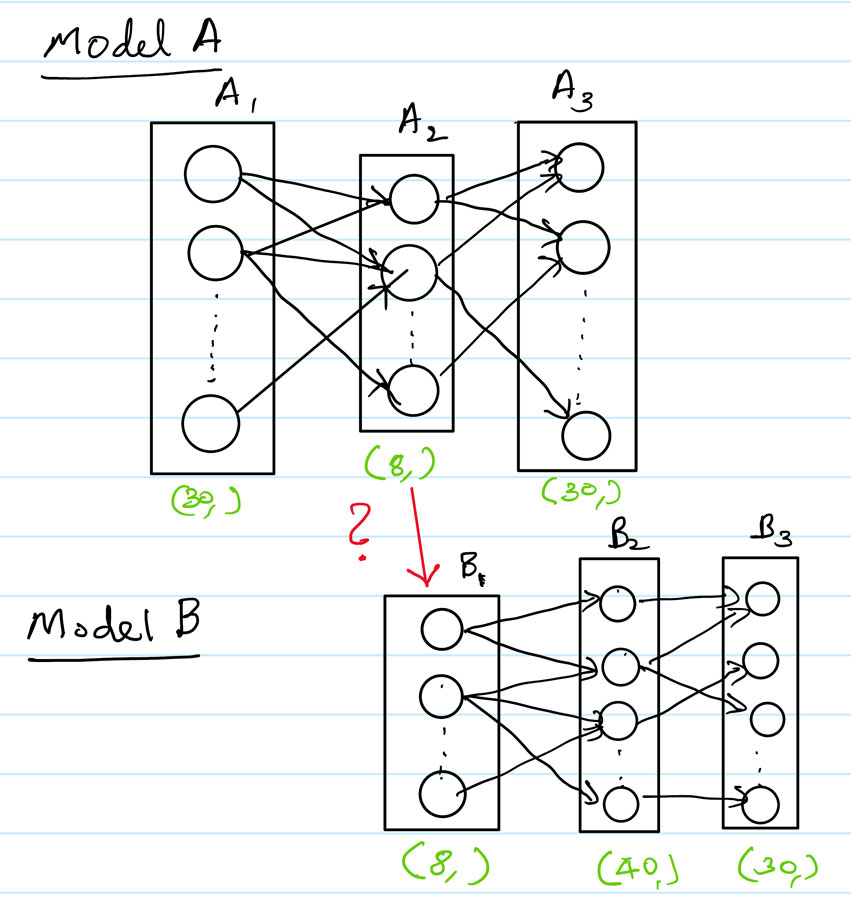 Model A
A1
A2
A3
(30,)
(8,)
(30,)
?
Model B
B1
B2
B3
(8,)
(40,)
(30,)